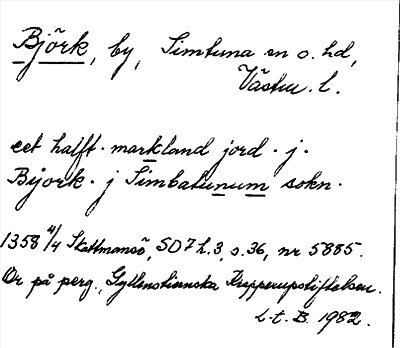 Björk, by, Simtuna sn o. hd,
Västm. l.
eet halfft . markland jord . j .
Biork . j Simbatununum sokn .
1358 4/4 Skattmansö, SD 7 h. 3, s. 36, nr 5885.
Or på perg., Gyllenstiernska Krapperupstiftelsen.
L-t. B. 1982.